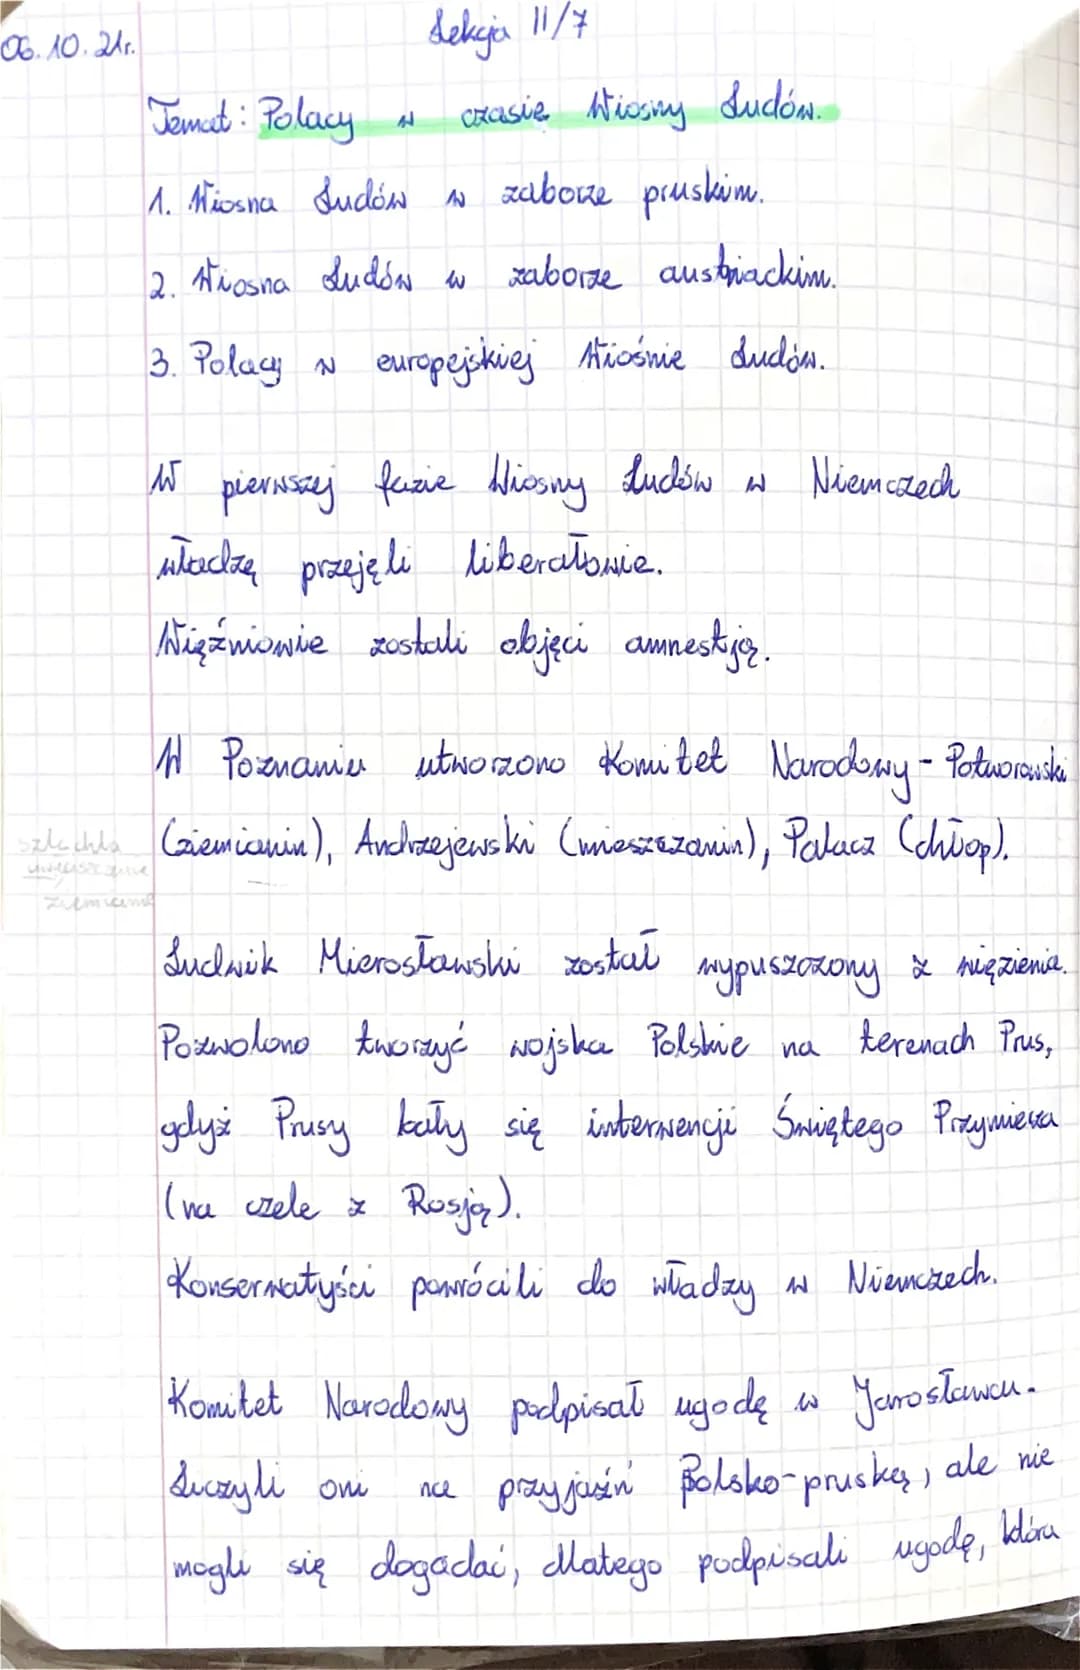 06.10.21r.
Lekcja 11/7
Temat: Polacy w czasie Wiosny Ludów.
1. Wiosna Ludów w zaborze pruskim.
2. Wiosna Ludów w zaborze austriackim.
3. Polacy w europejskiej Wiośnie Ludów.
W pierwszej fazie Wiosny Ludów w Niemczech
władzę przejęli liberałowie.
Więźniowie zostali objęci amnestją.
W Poznaniu utworzono Komitet Narodowy - Potworowski
(ziemianin), Andrzejewski (mieszczanin), Palacz (chłop).
szlachta
Ludwik Mierosławski został wypuszczony z więzienia.
Pozwolono tworzyć wojska Polskie na terenach Prus,
gdyż Prusy bały się interwencji Świętego Przymierza
(na czele z Rosją).
Konserwatyści powrócili do władzy w Niemczech.
Komitet Narodowy podpisał ugodę w Jarosławcu.
Liczyli oni na przyjaźń Polsko-pruską, ale nie
mogli się dogadać, dlatego podpisali ugodę, która